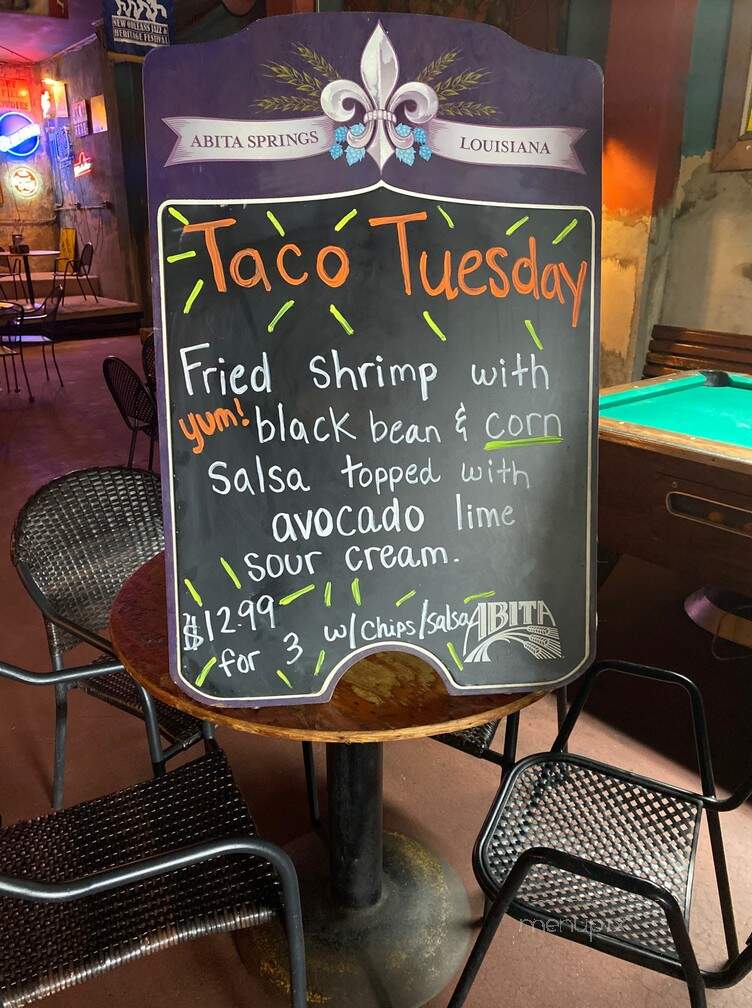 NEW ORLEANS JAZZ & HERITAGE FESTIVAL
ABITA SPRINGS LOUISIANA
Taco Tuesday
Fried shrimp with
yum! black bean & corn
salsa topped with
avocado lime
sour cream.
$12.99 w/ chips/salsa
for 3
ABITA
menupix